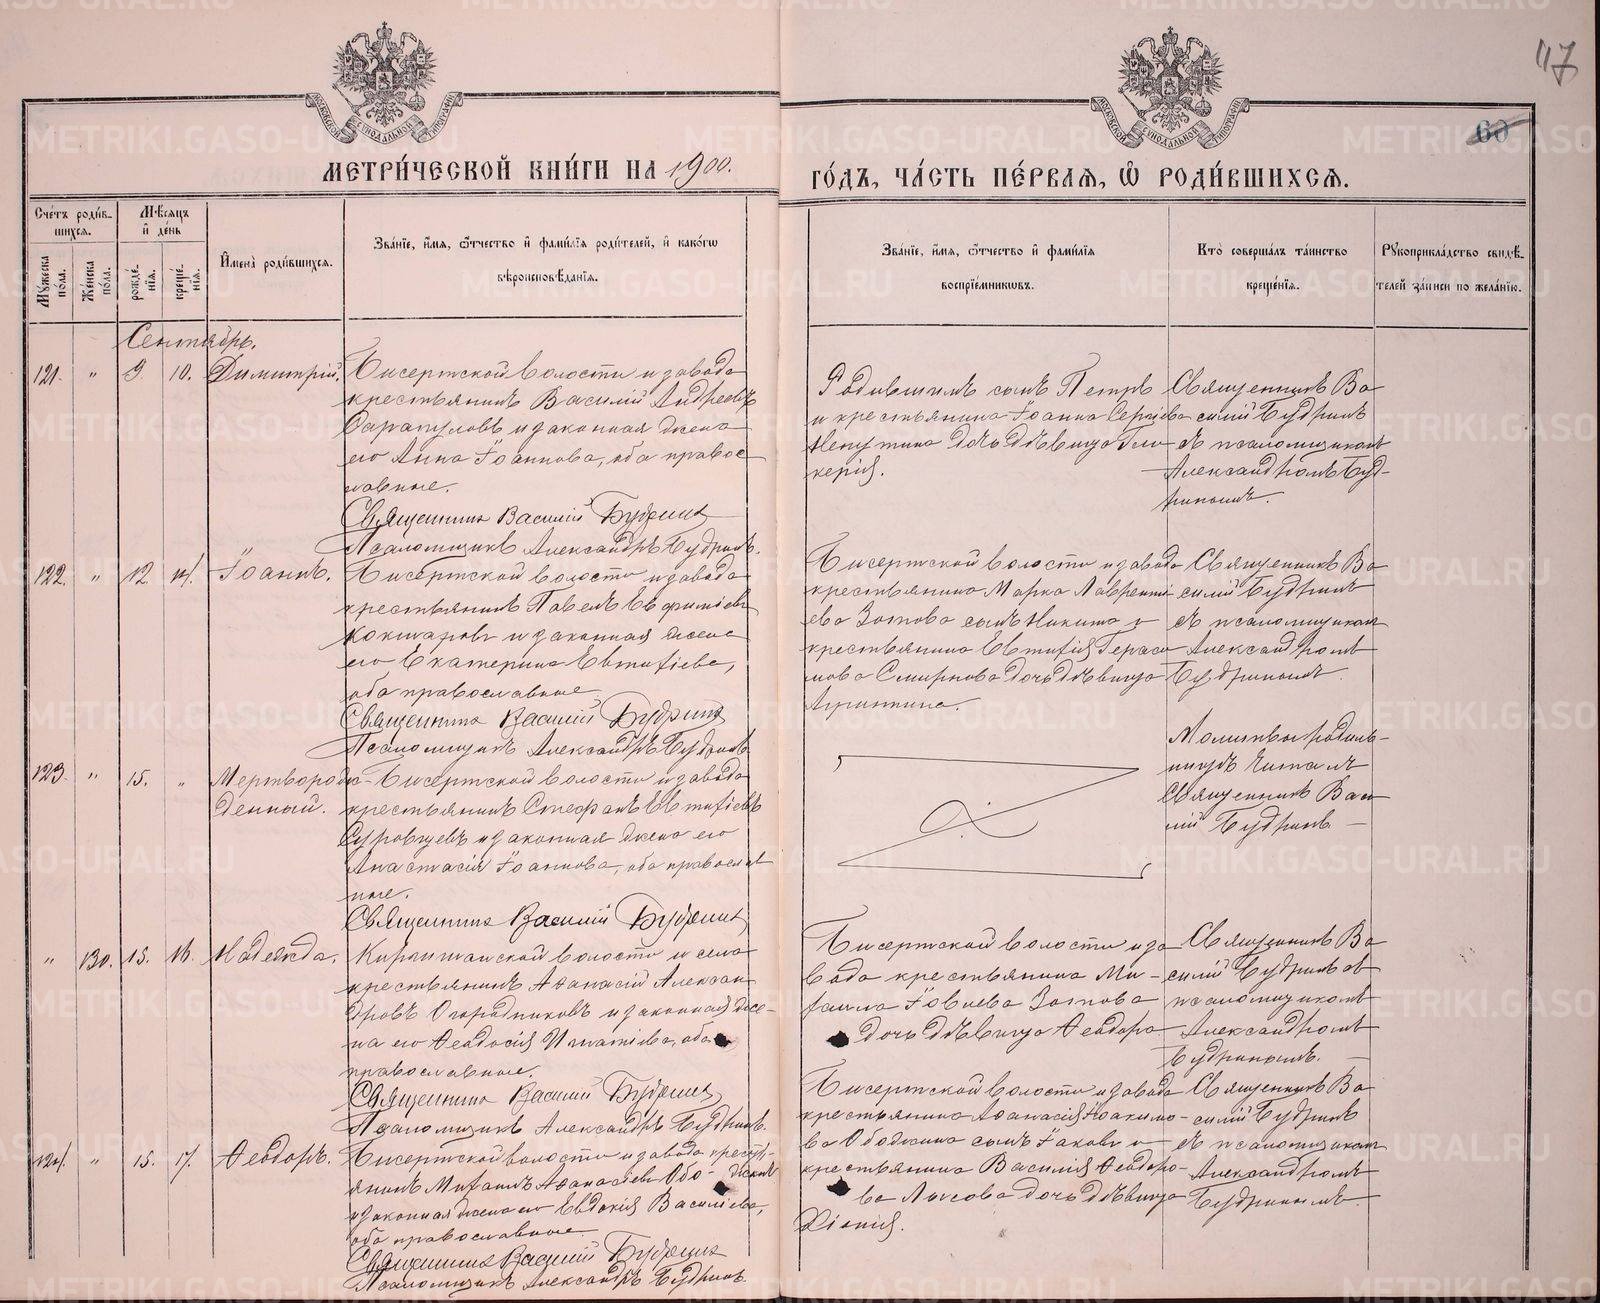 117
60
МЕТРИ́ЧЕСКОЙ КНИ́ГИ НА 1900.
ГО́ДЪ, ЧА́СТЬ ПЕ́РВАЯ, Ѡ РОДИ́ВШИХСЯ.
Сче́тъ роди́в-
шихся.
Мѣ́сяцъ
и де́нь
Мꙋ́жеска по́ла.
Же́нска по́ла.
рожде́-нїя.
креще́-нїя.
Имена̀ роди́вшихся.
Зва́нїе, и́мя, ѻ҆́тчество и фами́лїя роди́телей, и како́гѡ
вѣроисповѣ́данїя.
Зва́нїе, и́мя, ѻ҆́тчество и фами́лїя
восприе́мникѡвъ.
Кто̀ соверша́лъ та́инство
креще́нїя.
Рꙋкоприкла́дство свидѣ́-
телей за́писи по жела́нїю.
Сентябрь.
121. " 9. 10. Димитрій.
Бисертской волости и завода
крестьянинъ Василій Андреевъ
Сарапуловъ и законная жена
его Анна Іоаннова, оба право-
славные.
Священникъ Василій Будринъ
Псаломщикъ Александръ Будринъ.
Родившимъ сынъ Петръ
и крестьянина Іоанна Сергіева
дочь дѣвица Гли-
керія.
Священникъ Ва-
силій Будринъ
съ псаломщикомъ
Александромъ Буд-
ринымъ.
122. " 12. 14. Іоаннъ.
Бисертской волости и завода
крестьянинъ Павелъ Евфиміевъ
Кокшаровъ и законная жена
его Екатерина Евтихіева,
оба православные
Священникъ Василій Будринъ
Псаломщикъ Александръ Будринъ
Бисертской волости и завода
крестьянина Марка Лавренті-
ева Зотова сынъ Никита и
крестьянина Евтихія Гераси-
мова Смирнова дочь дѣвица
Священникъ Ва-
силій Будринъ
съ псаломщикомъ
Александромъ
Будринымъ.
123. " 15. " Мертворож-
денный.
Бисертской волости и завода
крестьянинъ Стефанъ Евтихіевъ
Суровцевъ и законная жена его
Анастасія Іоаннова, оба православ-
ные.
Священникъ Василій Будринъ
Молитвы родиль-
ницѣ читалъ
Священникъ Васи-
лій Будринъ.
" 130. 15. 16. Надежда.
Киргишанской волости и села
крестьянинъ Аѳанасій Алексан-
дровъ Огородниковъ и законная же-
на его Ѳеодосія Игнатіева, оба
православные.
Священникъ Василій Будринъ
Псаломщикъ Александръ Будринъ.
Бисертской волости и за-
вода крестьянина Ми-
хаила Іовлева Зотова
дочь дѣвица Ѳеодора
Священникъ Ва-
силій Будринъ съ
псаломщикомъ
Александромъ
Будринымъ.
124. " 15. 17. Ѳеодоръ.
Бисертской волости и завода кресть-
янинъ Михаилъ Аѳанасіевъ Обо-
и законная жена его Евдокія Василіева,
оба православные
Священникъ Василій Будринъ
Псаломщикъ Александръ Будринъ.
Бисертской волости и завода
крестьянина Аѳанасія Іоакимо-
ва сынъ Іаковъ и
крестьянина Василія Ѳеодоро-
ва дочь дѣвица
Хіонія.
Священникъ Ва-
силій Будринъ
съ псаломщикомъ
Александромъ
Будринымъ.